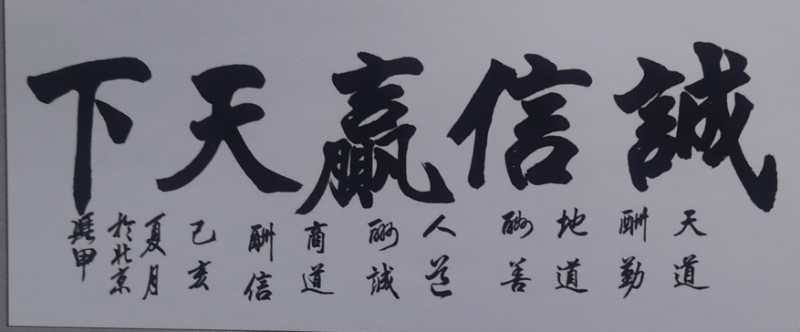 誠信赢天下
天道
酬勤
地道
酬善
人道
酬誠
商道
酬信
己亥
夏月
於北京